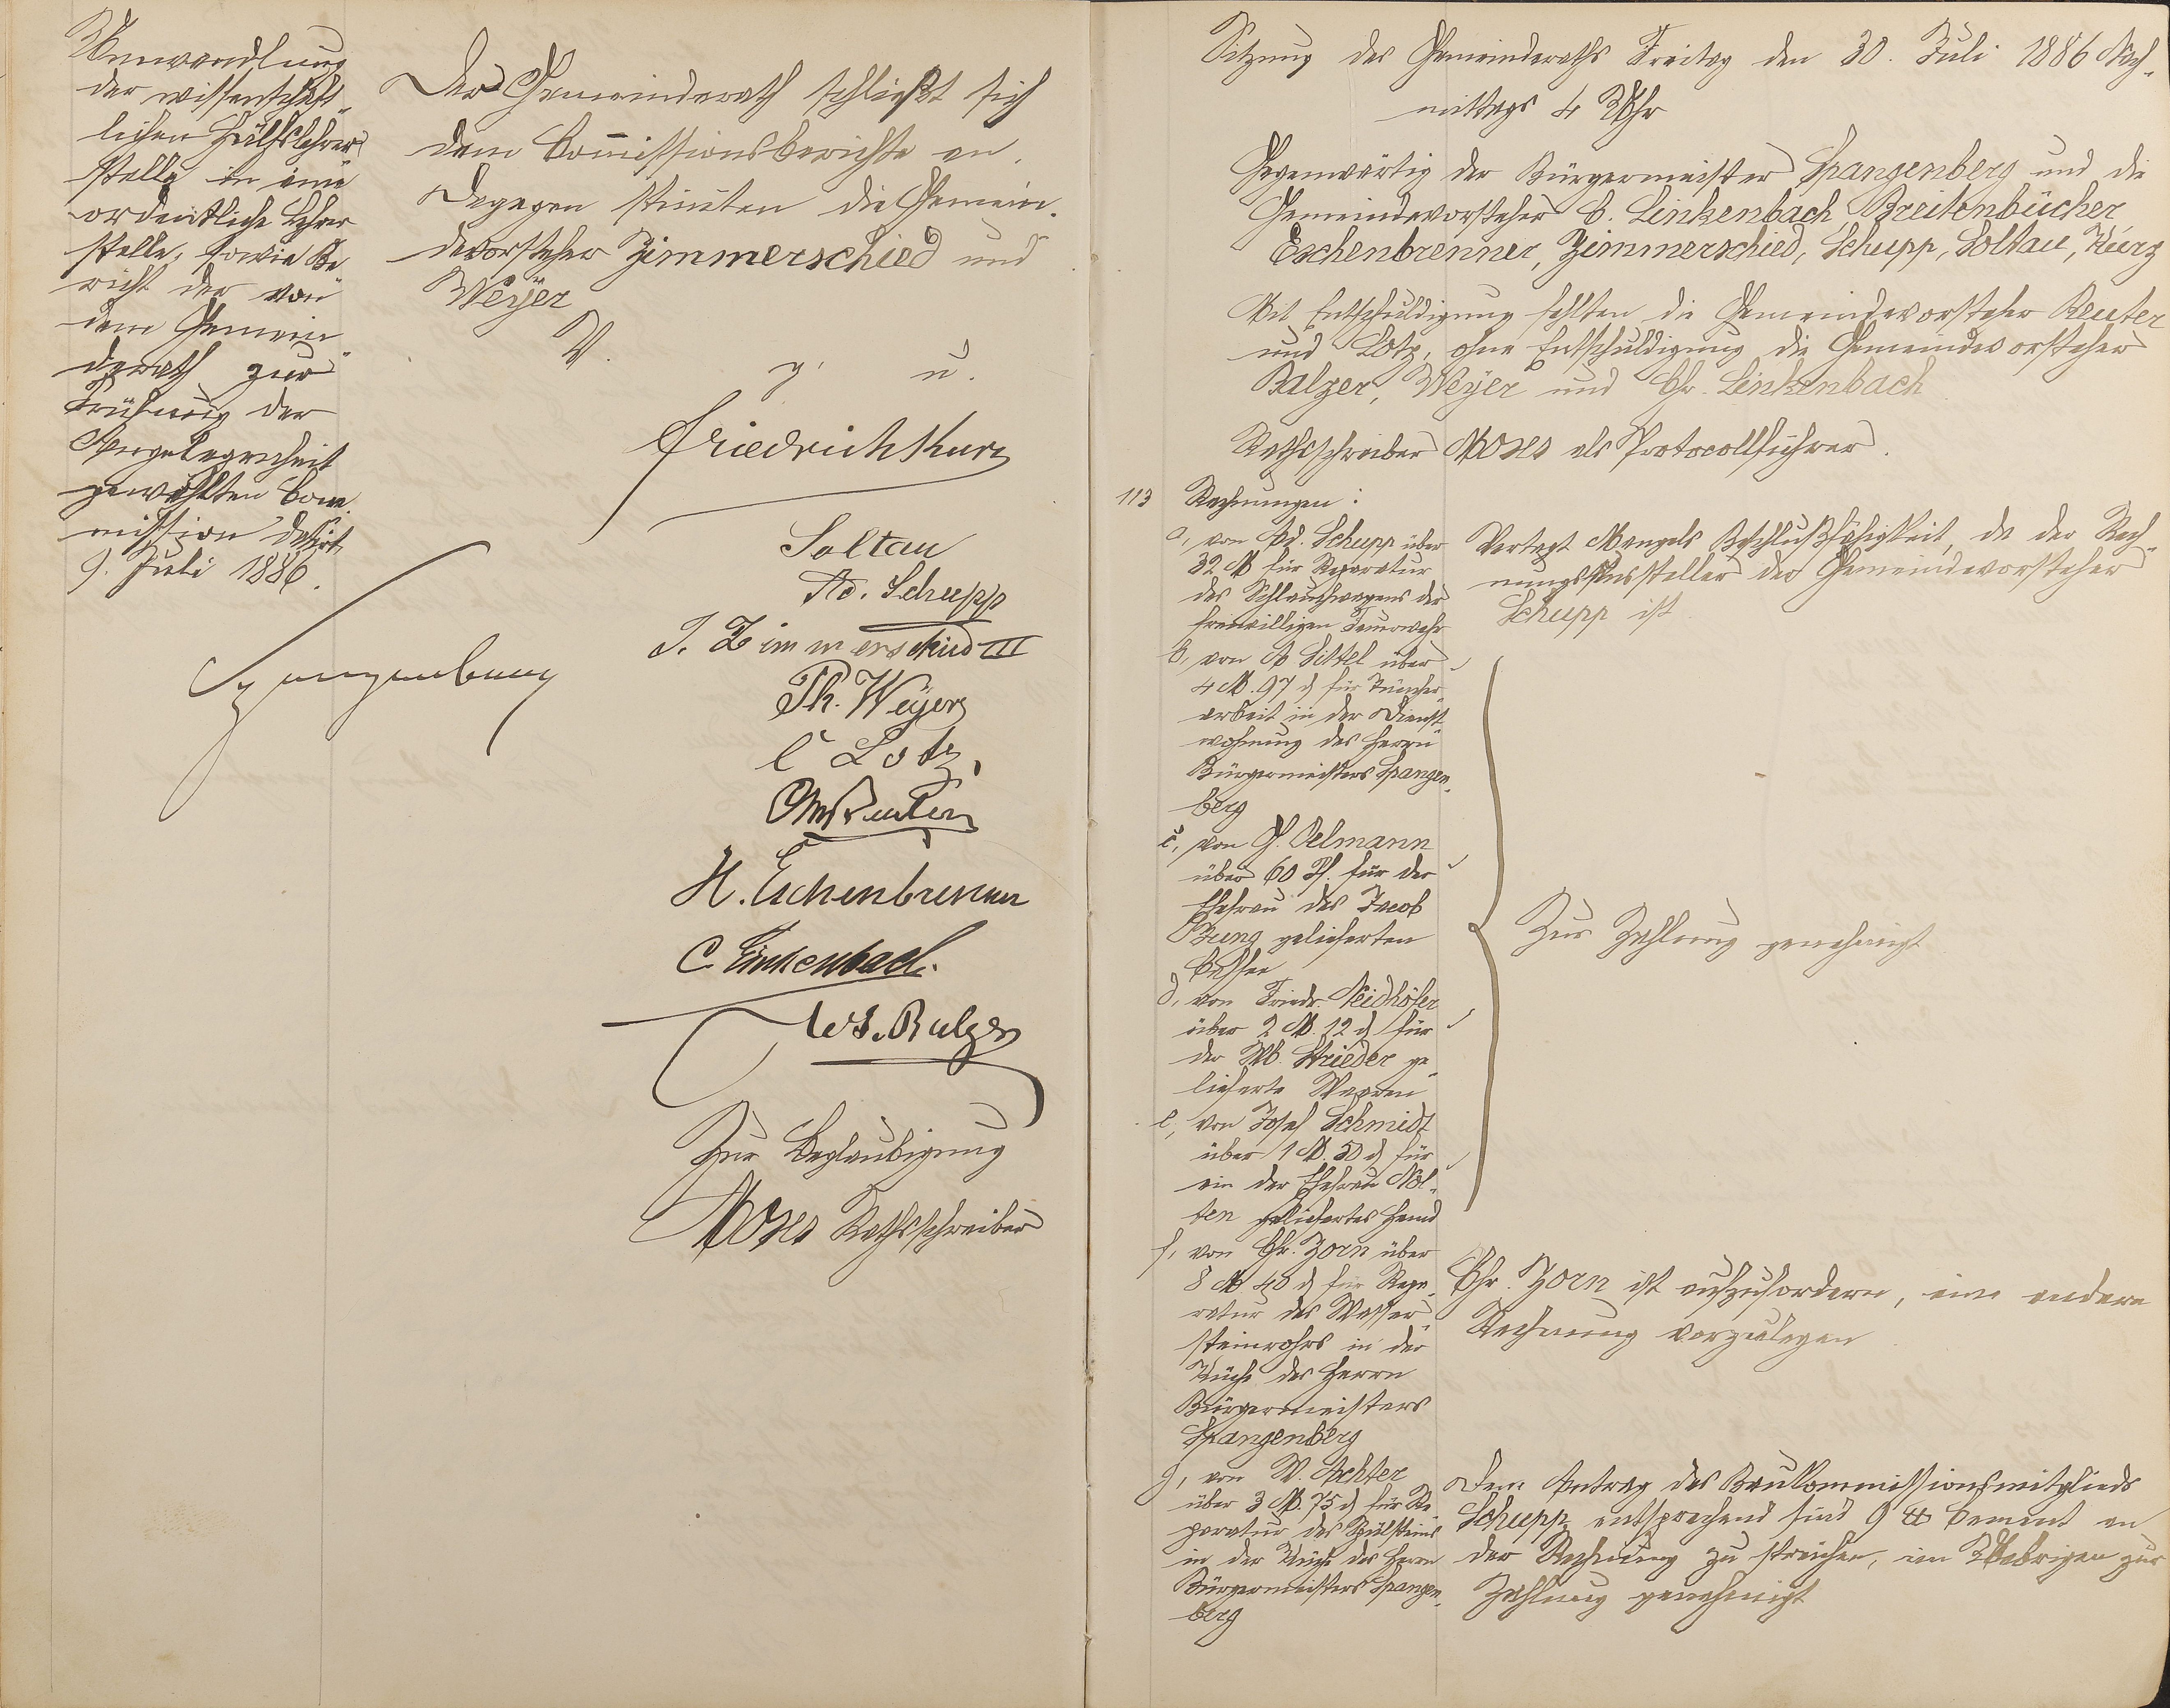 Umwandlung
der wissenschaft-
lichen Hülfslehrer
stelle in eine
ordentliche Lehrer
stelle, sowie Be
richt der von
dem Gemein
derath zur
Prüfung der
Angelegenheit
gewählten Com
mission datirt
9. Juli 1886.
Spangenberg
Der Gemeinderath schließt sich
dem Commissionsberichte an.
Dagegen stimmten die Gemein-
devorsteher Zimmerschied und
Weyer
V. g. u.
Friedrich Kurz
Soltau
Ad. Schupp
J. Zimmerschied III
Ph. Weyer
C Lotz
Reuter
H. Eschenbrenner
C. Linkenbach
Balzer
Zur Beglaubigung
Moses Rathsschreiber
Sitzung des Gemeinderaths Freitag den 30. Juli 1886 Nach-
mittags 4 Uhr
Gegenwärtig der Bürgermeister Spangenberg und die
Gemeindevorsteher C. Linkenbach, Breitenbücher,
Eschenbrenner, Zimmerschied, Schupp, Soltau, Kurz
Mit Entschuldigung fehlten die Gemeindevorsteher Reuter
und Lotz, ohne Entschuldigung die Gemeindevorsteher
Balzer, Weyer und Chr. Linkenbach
Rathsschreiber Moses als Protocollführer.
113 Rechnungen:
a, von Ad. Schupp über
32 M für Reparatur
des Schlauchwagens der
freiwilligen Feuerwehr
Vertagt Mangels Beschlußfähigkeit, da der Rech-
nungsaussteller der Gemeindevorsteher
Schupp ist
b, von A Sittel über
4 M. 97 d für Tüncher
arbeit in der Dienst
wohnung des Herrn
Bürgermeisters Spangen-
berg
c, von G. Oelmann
über 60 Pf. für der
Ehefrau des Jacob
Bung gelieferten
Caffee
d, von Friedr. Neidhöfer
über 2 M. 12 d für
der Wb. Strieder ge
lieferte Waaren
e, von Josef Schmidt
über 1 M. 50 d für
ein der Ehefrau Nol-
ten geliefertes Hemd
Zur Zahlung genehmigt
f, von Chr. Zorn über
8 M 40 d für Repa-
ratur des Wasser-
steinrohrs in der
Küche des Herrn
Bürgermeisters
Spangenberg
Chr. Zorn ist aufzufordern, eine andere
Rechnung vorzulegen
g, von W. Achter
über 3 M. 75 d für Re
paratur des Spülsteins
in der Küche des Herrn
Bürgermeisters Spangen-
berg
Dem Antrag des Baukommissionsmitglieds
Schupp entsprechend sind 9 ℔ Cement an
der Rechnung zu streichen, im Uebrigen zur
Zahlung genehmigt